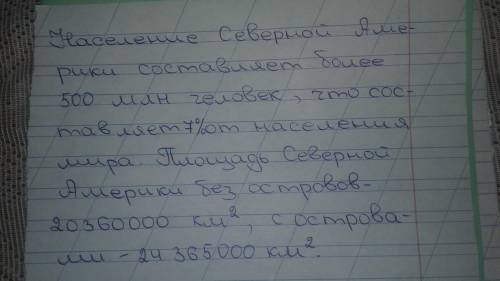 Население Северной Аме-
рики составляет более
500 млн человек, что сос-
тавляет 7% от населения
мира. Площадь Северной
Америки без островов-
20360000 км², с острова-
ми - 24 365000 км².